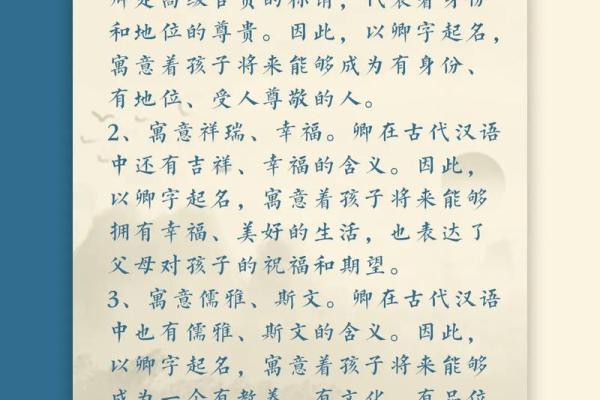 卿是高级官员的称谓，代表着身份
和地位的尊贵。因此，以卿字起名，
寓意着孩子将来能够成为有身份、
有地位、受人尊敬的人。
2、寓意祥瑞、幸福。卿在古代汉语
中还有吉祥、幸福的含义。因此，
以卿字起名，寓意着孩子将来能够
拥有幸福、美好的生活，也表达了
父母对孩子的祝福和期望。
3、寓意儒雅、斯文。卿在古代汉语
中也有儒雅、斯文的含义。因此，
以卿字起名，寓意着孩子将来能够
成为一个有教养、有文化、有品位